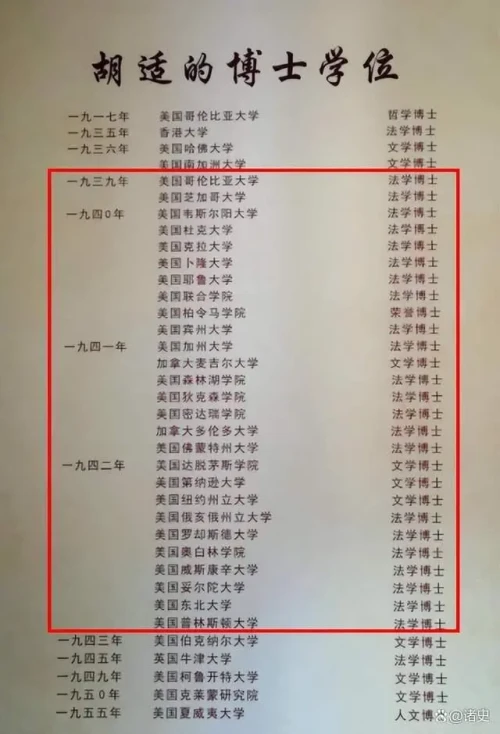 胡适的博士学位
一九一七年 美国哥伦比亚大学 哲学博士
一九三五年 香港大学 法学博士
一九三六年 美国哈佛大学 文学博士
美国南加洲大学 文学博士
一九三九年 美国哥伦比亚大学 法学博士
美国芝加哥大学 法学博士
一九四0年 美国韦斯尔阳大学 法学博士
美国杜克大学 法学博士
美国克拉大学 法学博士
美国卜隆大学 法学博士
美国耶鲁大学 法学博士
美国联合学院 法学博士
美国柏令马学院 荣誉博士
美国宾州大学 法学博士
一九四一年 美国加州大学 法学博士
加拿大麦吉尔大学 文学博士
美国森林湖学院 法学博士
美国狄克森学院 法学博士
美国密达瑞学院 法学博士
加拿大多伦多大学 法学博士
美国佛蒙特州大学 法学博士
一九四二年 美国达脱茅斯学院 文学博士
美国第纳逊大学 文学博士
美国纽约州立大学 文学博士
美国俄亥俄州立大学 法学博士
美国罗却斯德大学 法学博士
美国奥白林学院 法学博士
美国威斯康辛大学 法学博士
美国妥尔陀大学 法学博士
美国东北大学 法学博士
美国普林斯顿大学 法学博士
一九四三年 美国伯克纳尔大学 文学博士
一九四五年 英国牛津大学 法学博士
一九四九年 美国柯鲁开特大学 文学博士
一九五0年 美国克莱蒙研究院 文学博士
一九五五年 美国夏威夷大学 人文博士
诸史